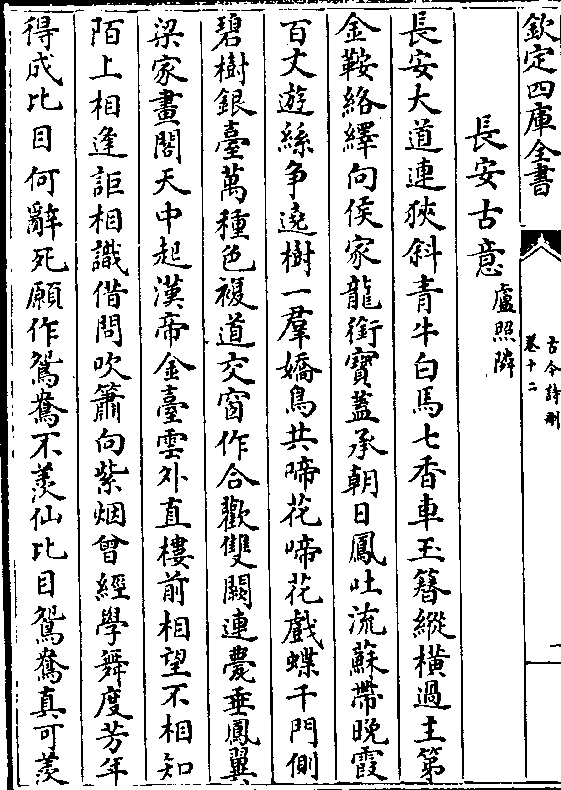 欽定四庫全書
古今詩刪
卷十二
一
長安古意
盧照隣
長安大道連狹斜青牛白馬七香車玉簮縱橫過主第
金鞍絡繹向侯家龍銜寶蓋承朝日鳳吐流蘇帶晚霞
百丈遊絲争遶樹一羣嬌鳥共啼花啼花戲蝶千門側
碧樹銀臺萬種色複道交窗作合歡雙闕連甍垂鳳翼
梁家畫閣天中起漢帝金臺雲外直樓前相望不相知
陌上相逢詎相識借問吹簫向紫烟曾經學舞度芳年
得成比目何辭死願作鴛鴦不羨仙比目鴛鴦真可羨